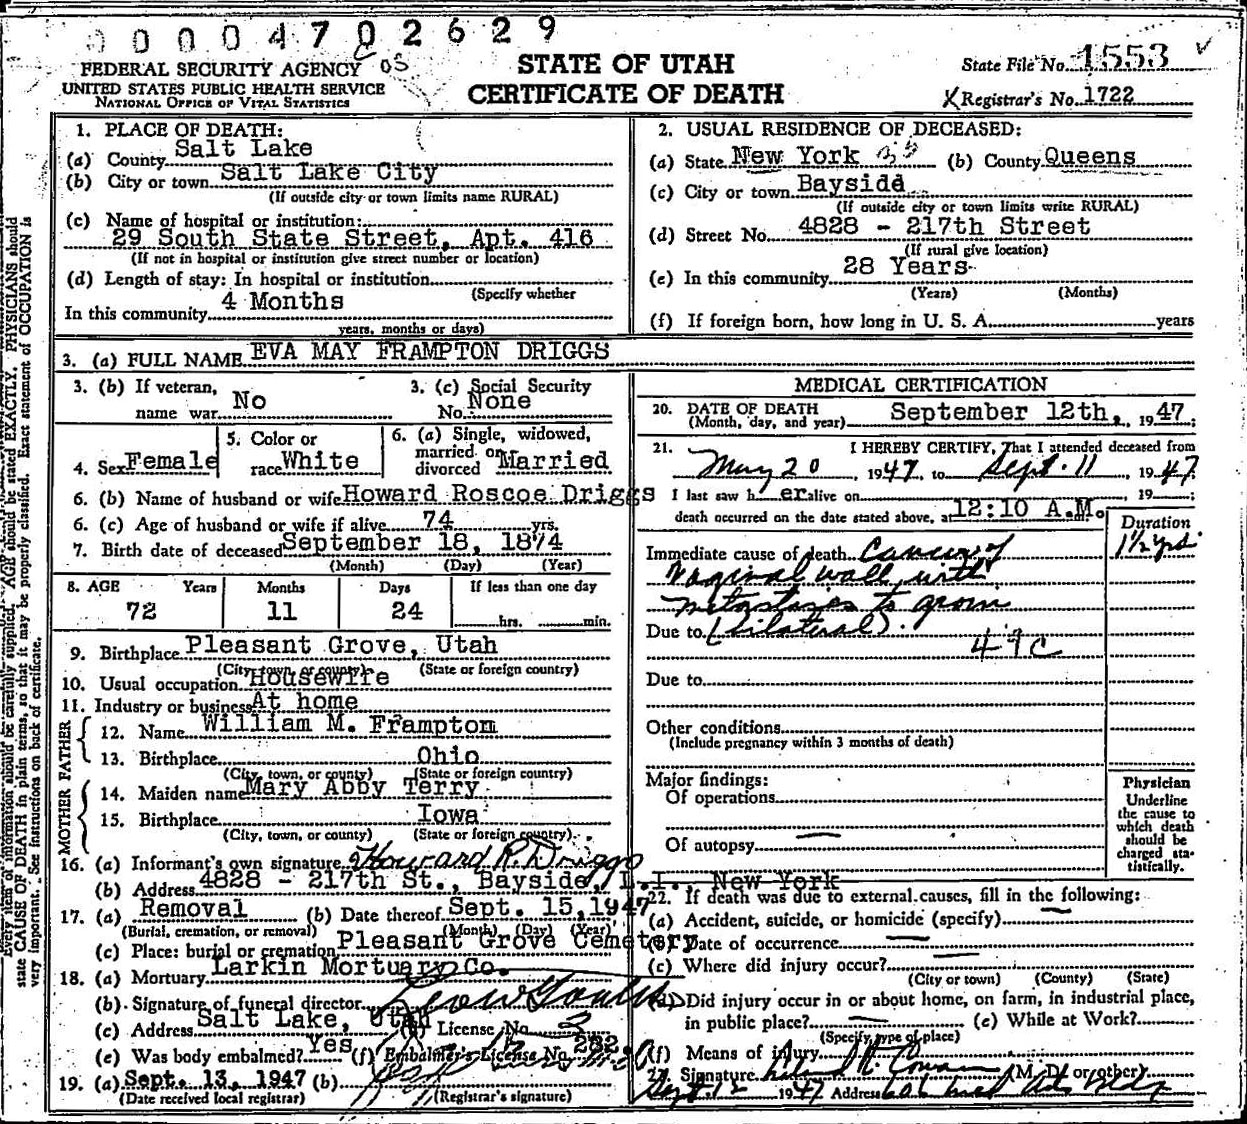 0 0 0 0 4 7 0 2 6 2 9
FEDERAL SECURITY AGENCY
UNITED STATES PUBLIC HEALTH SERVICE
NATIONAL OFFICE OF VITAL STATISTICS
STATE OF UTAH
CERTIFICATE OF DEATH
State File No. 1553
Registrar's No. 1722
1. PLACE OF DEATH:
(a) County Salt Lake
(b) City or town Salt Lake City
(If outside city or town limits name RURAL)
(c) Name of hospital or institution:
29 South State Street, Apt. 416
(If not in hospital or institution give street number or location)
(d) Length of stay: In hospital or institution
(Specify whether
In this community 4 Months
years, months or days)
2. USUAL RESIDENCE OF DECEASED:
(a) State New York (b) County Queens
(c) City or town Bayside
(If outside city or town limits write RURAL)
(d) Street No. 4828 - 217th Street
(If rural give location)
(e) In this community 28 Years
(Years) (Months)
(f) If foreign born, how long in U. S. A. years
3. (a) FULL NAME EVA MAY FRAMPTON DRIGGS
3. (b) If veteran, name war No
3. (c) Social Security No. None
4. Sex Female
5. Color or race White
6. (a) Single, widowed, married or divorced Married
6. (b) Name of husband or wife Howard Roscoe Driggs
6. (c) Age of husband or wife if alive 74 yrs.
7. Birth date of deceased September 18, 1874
(Month) (Day) (Year)
8. AGE Years Months Days If less than one day
72 11 24 hrs. min.
9. Birthplace Pleasant Grove, Utah
(City, town, or county) (State or foreign country)
10. Usual occupation Housewife
11. Industry or business At home
FATHER
12. Name William M. Frampton
13. Birthplace Ohio
(City, town, or county) (State or foreign country)
MOTHER
14. Maiden name Mary Abby Terry
15. Birthplace Iowa
(City, town, or county) (State or foreign country)
16. (a) Informant's own signature Howard R. Driggs
(b) Address 4828 - 217th St., Bayside, L.I., New York
17. (a) Removal (b) Date thereof Sept. 15, 1947
(Burial, cremation, or removal) (Month) (Day) (Year)
(c) Place: burial or cremation Pleasant Grove Cemetery
18. (a) Mortuary Larkin Mortuary Co.
(b) Signature of funeral director
(c) Address Salt Lake, Utah License No. 3
(e) Was body embalmed? Yes (f) Embalmer's License No. 282
19. (a) Sept. 13, 1947 (b)
(Date received local registrar) (Registrar's signature)
MEDICAL CERTIFICATION
20. DATE OF DEATH September 12th, 1947;
(Month, day, and year)
21. I HEREBY CERTIFY, That I attended deceased from
May 20, 1947 to Sept. 11, 1947
I last saw her alive on , 19 ;
death occurred on the date stated above, at 12:10 A.M.
Duration
Immediate cause of death Cancer of 1½ yrs.
Vaginal wall with
metastases to groin
Due to (bilateral).
49c
Due to
Other conditions
(Include pregnancy within 3 months of death)
Major findings:
Of operations
Of autopsy
Physician
Underline
the cause to
which death
should be
charged sta-
tistically.
22. If death was due to external causes, fill in the following:
(a) Accident, suicide, or homicide (specify)
(b) Date of occurrence
(c) Where did injury occur?
(City or town) (County) (State)
(d) Did injury occur in or about home, on farm, in industrial place,
in public place? (e) While at Work?
(Specify type of place)
(f) Means of injury
23. Signature Leland R. Cowan (M. D. or other)
Sept. 12 1947 Address 606 Med Arts Bldg
Every item of information should be carefully supplied. AGE should be stated EXACTLY. PHYSICIANS should
state CAUSE OF DEATH in plain terms, so that it may be properly classified. Exact statement of OCCUPATION is
very important. See instructions on back of certificate.